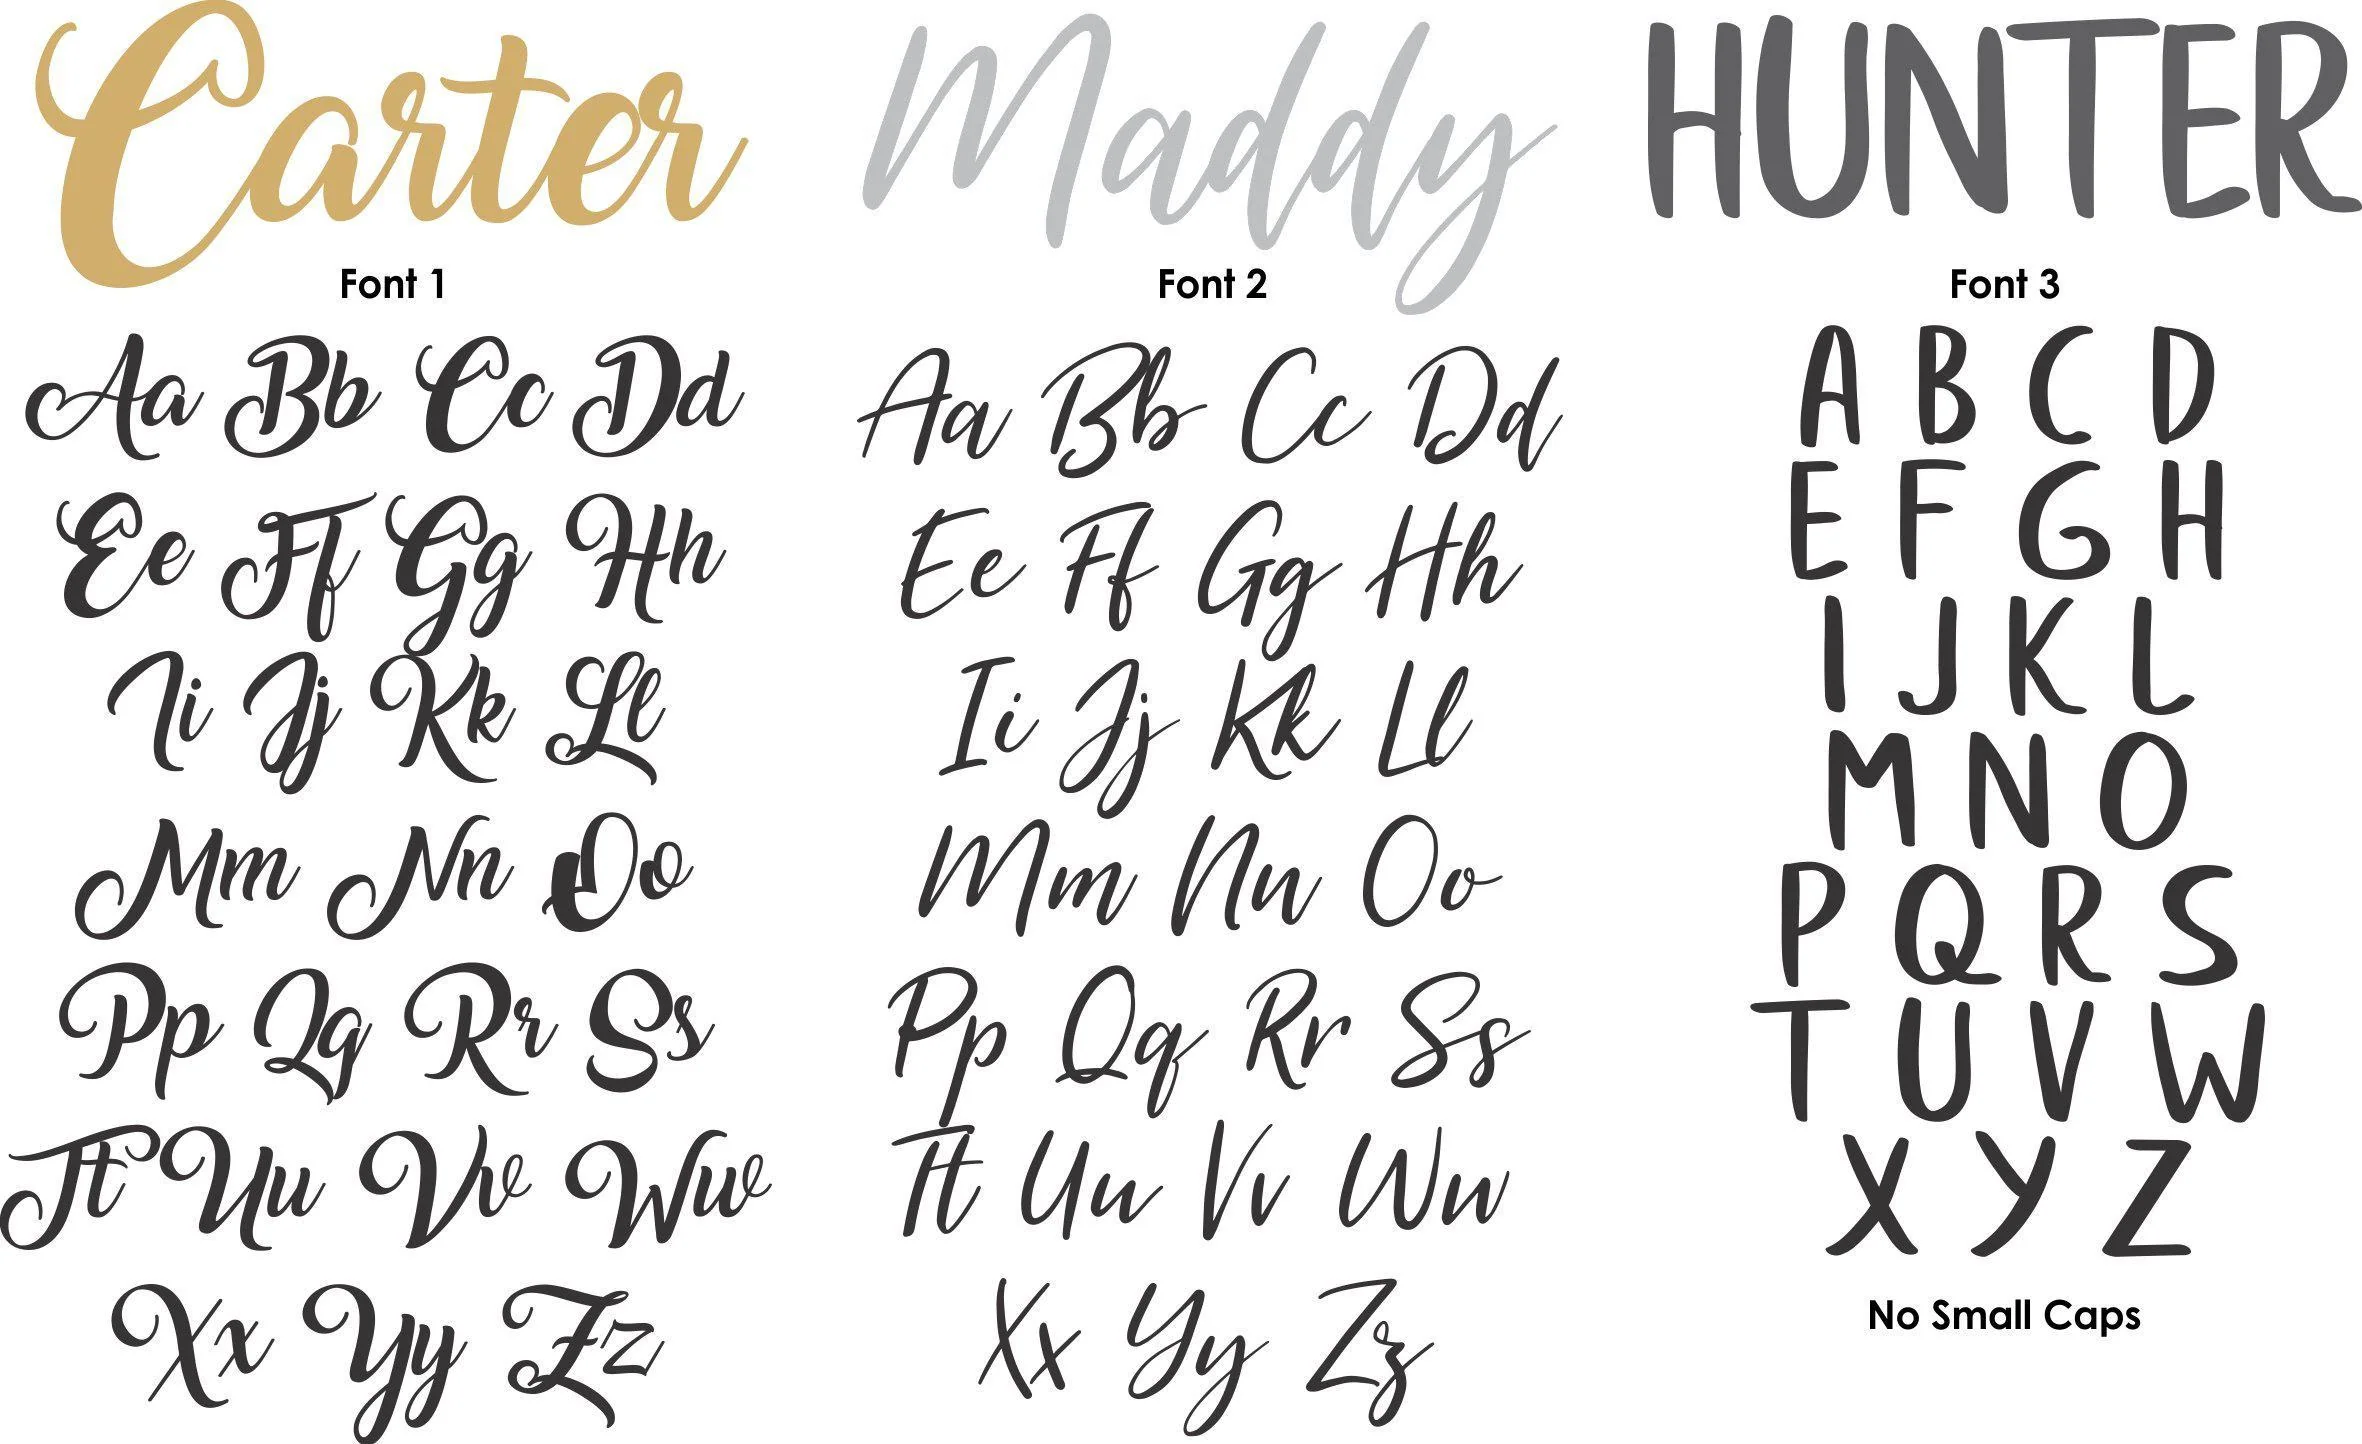 Carter
Font 1
Aa Bb Cc Dd
Ee Ff Gg Hh
Ii Jj Kk Ll
Mm Nn Oo
Pp Qq Rr Ss
Tt Uu Vv Ww
Xx Yy Zz
Maddy
Font 2
Aa Bb Cc Dd
Ee Ff Gg Hh
Ii Jj Kk Ll
Mm Nn Oo
Pp Qq Rr Ss
Tt Uu Vv Ww
Xx Yy Zz
HUNTER
Font 3
A B C D
E F G H
I J K L
M N O
P Q R S
T U V W
X Y Z
No Small Caps